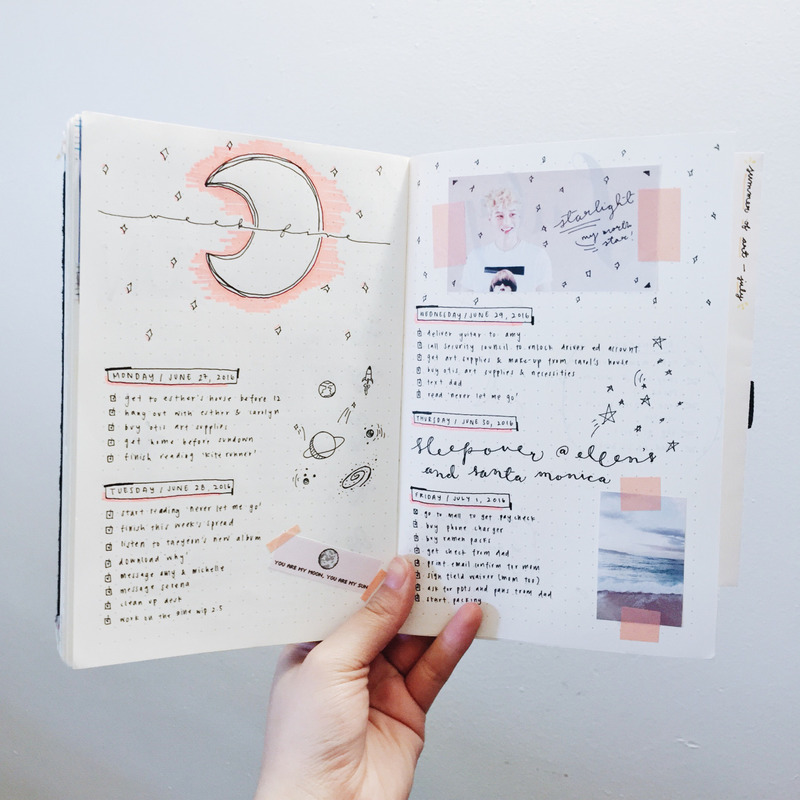 week five
MONDAY / JUNE 27, 2016
get to esther's house before 12
hang out with esther & carolyn
buy otis art supplies
get home before sundown
finish reading 'kite runner'
TUESDAY / JUNE 28, 2016
start reading 'never let me go'
finish this week's spread
listen to taeyeon's new album
download 'why'
message amy & michelle
message serena
clean up desk
work on the
YOU ARE MY MOON, YOU ARE MY SUN
starlight
my world
star!
WEDNESDAY / JUNE 29, 2016
deliver guitar to amy
call security council to unlock driver ed account
get art supplies & make-up from carol's house
buy otis art supplies & necessities
text dad
read 'never let me go'
THURSDAY / JUNE 30, 2016
sleepover @ ellen's
and santa monica
FRIDAY / JULY 1, 2016
go to mall to get paycheck
buy phone charger
buy ramen packs
get check from dad
print email confirm for mom
sign field waiver (mom too)
ask for pots and pans from dad
start packing
summer of art - july